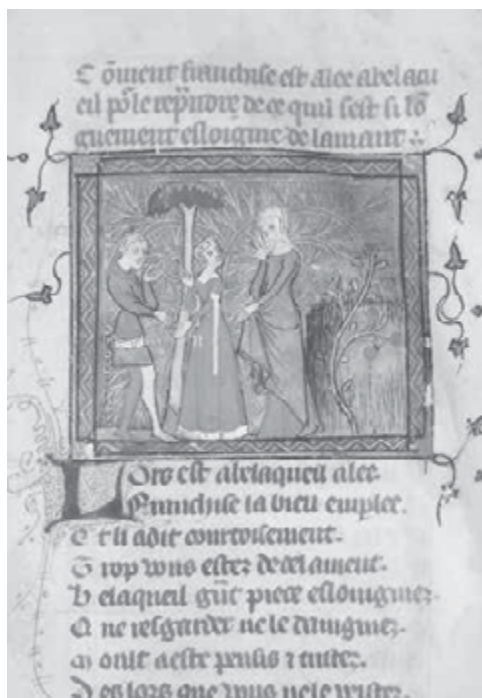 Coment franchise est alee a bel acu
eil po le reprndre de ce quil sest si lo
guement esloignie de lamant
Lors est a belaqueil alee
Franchise la bien emplee
Et li a dit courtoisement
Trop vous estes
Belaqueil gnt piece esloigniez
Que resgarder ne le daigniez
Mout a este pensis et tristes
Des lors que vous ne le veistes